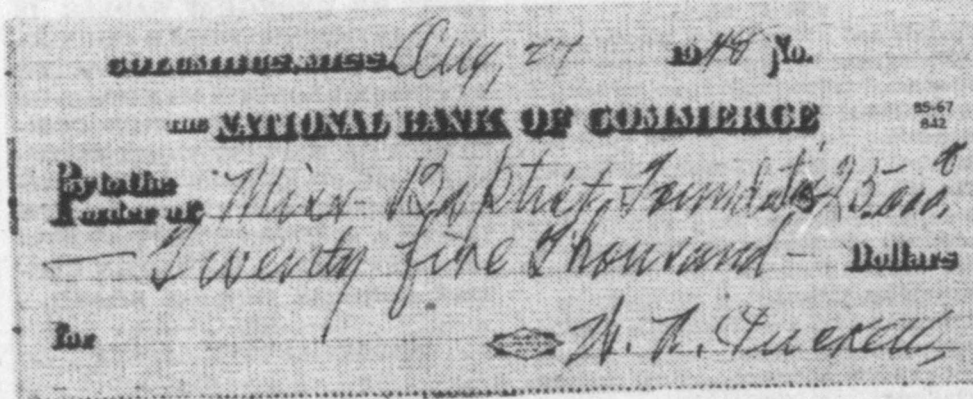 COLUMBUS, MISS. Aug, 27 1948 No.
THE NATIONAL BANK OF COMMERCE 85-67 842
Pay to the Order of Miss. Baptist Foundation $25,000
Twenty five Thousand Dollars
For